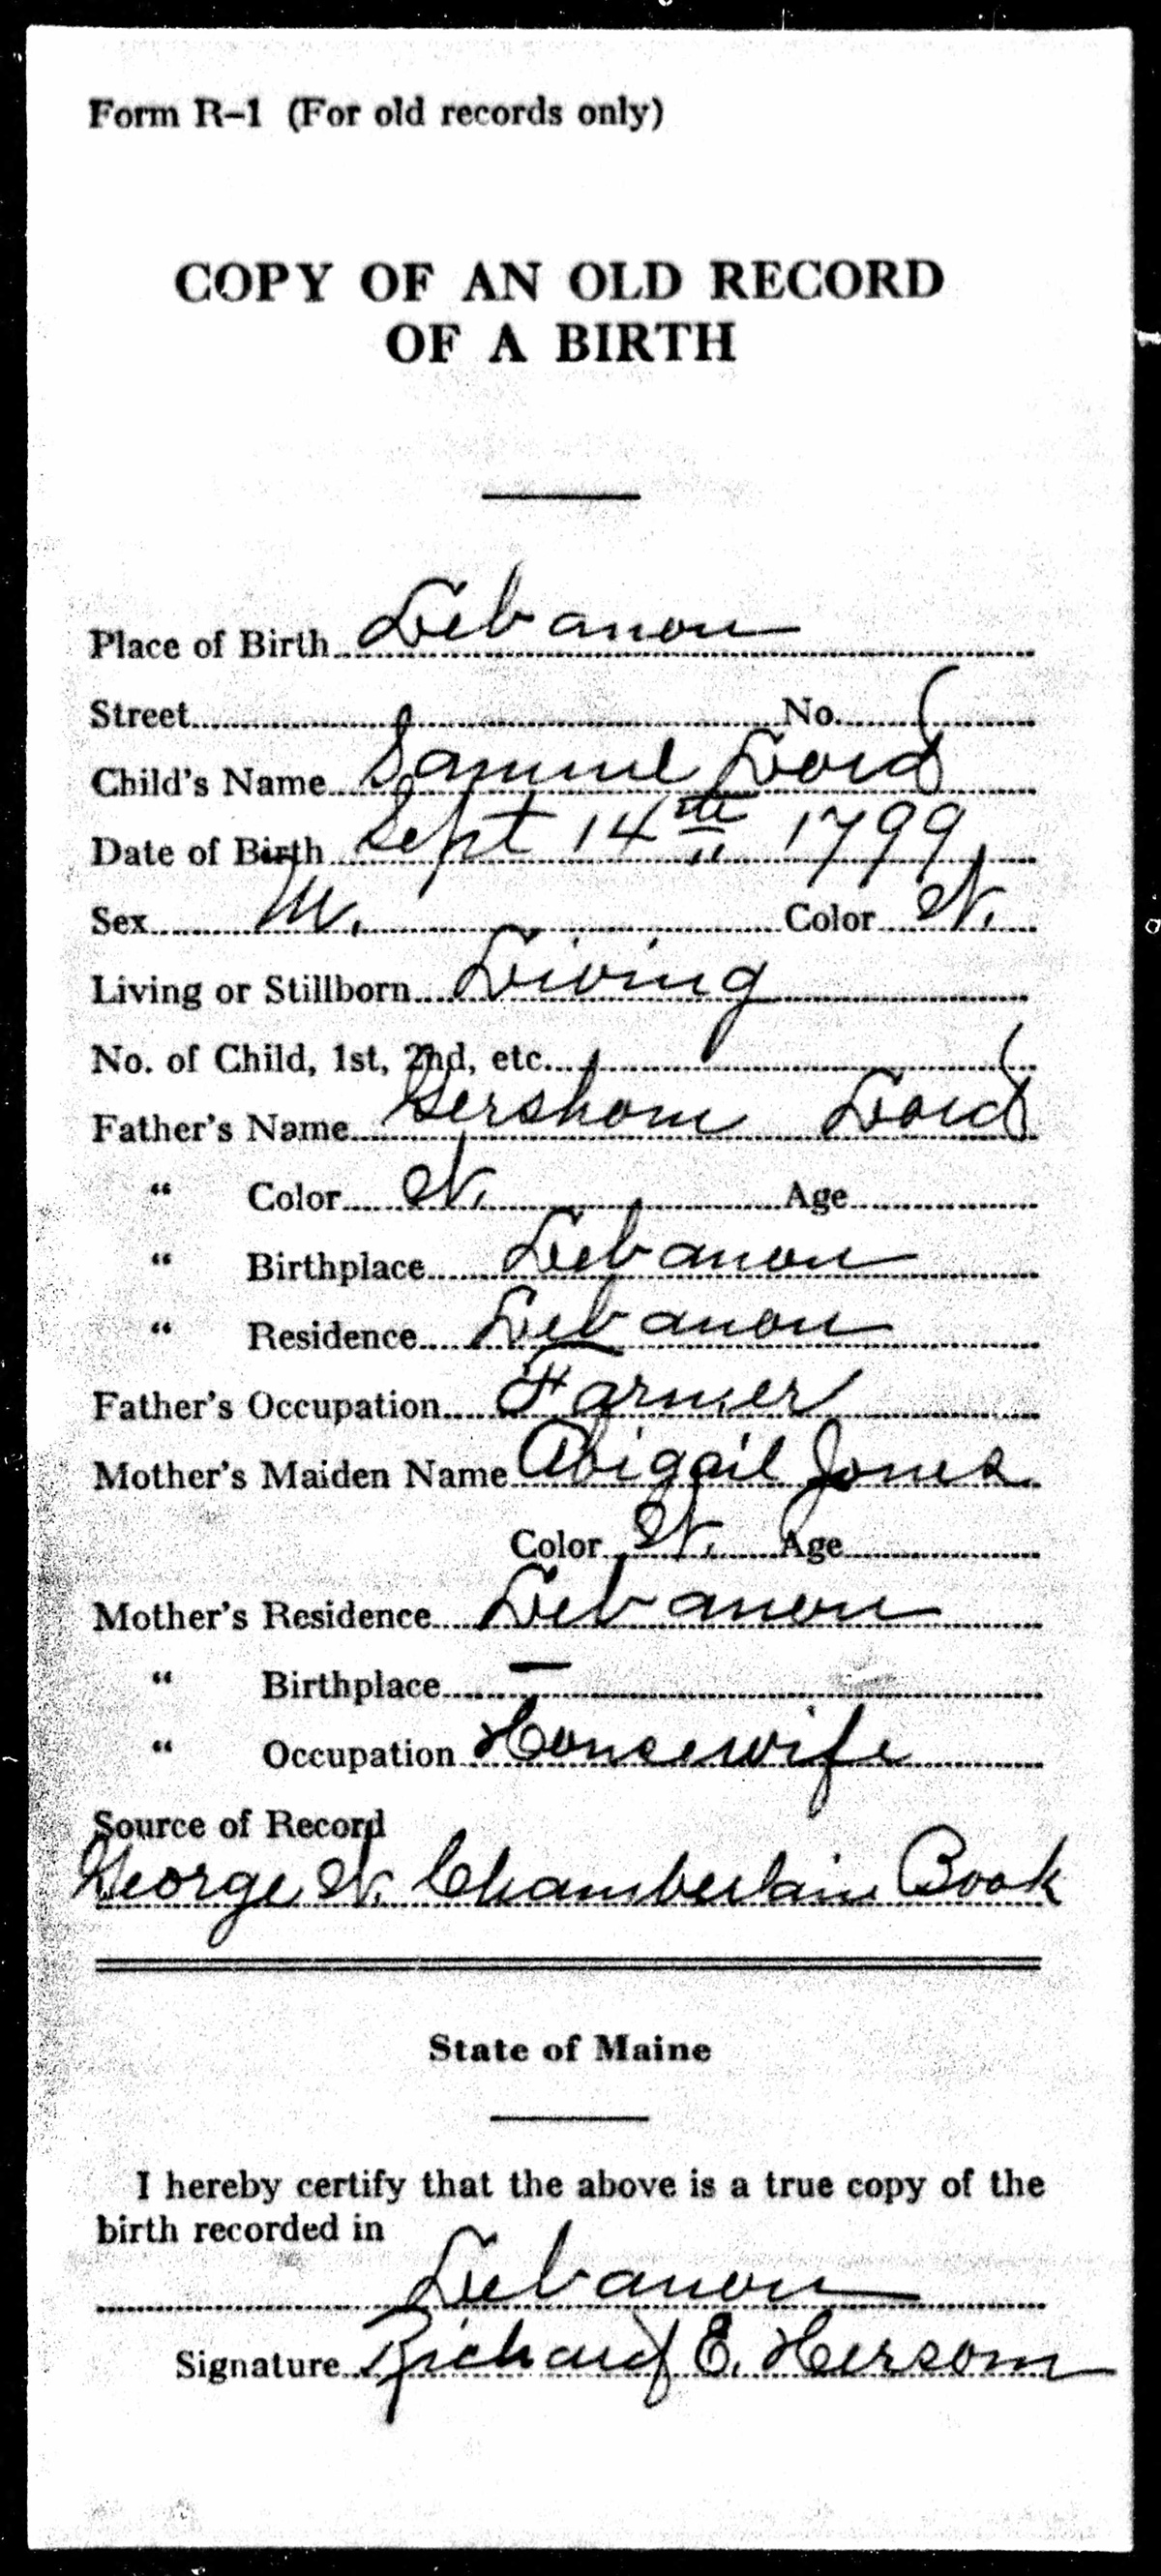 Form R-1 (For old records only)
COPY OF AN OLD RECORD
OF A BIRTH
Place of Birth Lebanon
Street No.
Child's Name Samuel Lord
Date of Birth Sept 14th 1799
Sex M. Color W.
Living or Stillborn Living
No. of Child, 1st, 2nd, etc.
Father's Name Gershom Lord
" Color W. Age
" Birthplace Lebanon
" Residence Lebanon
Father's Occupation Farmer
Mother's Maiden Name Abigail Jones
Color W. Age
Mother's Residence Lebanon
" Birthplace —
" Occupation Housewife
Source of Record
George W. Chamberlain Book
State of Maine
I hereby certify that the above is a true copy of the
birth recorded in
Lebanon
Signature Richard E. Hersom